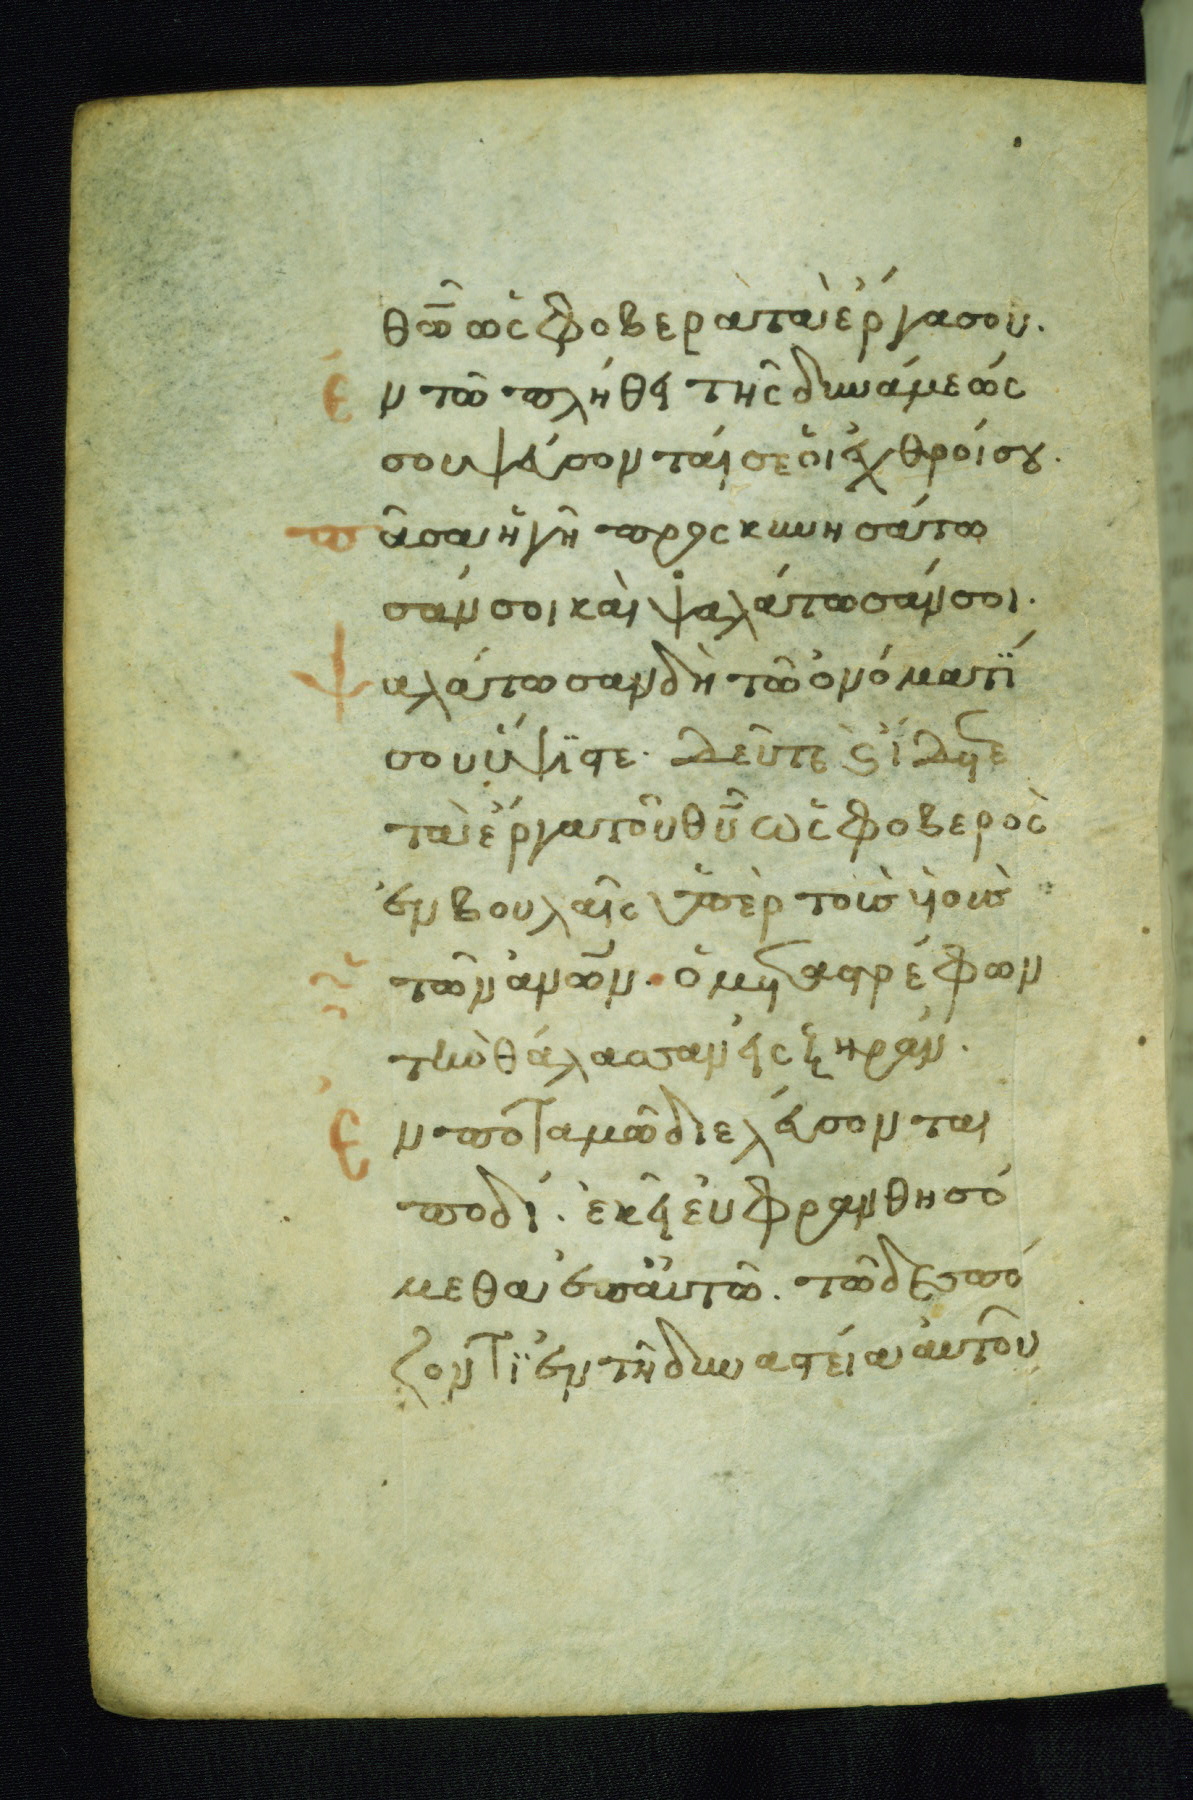 θω̅ ὡς φοβερὰ τὰ ἔργα σου.
ἐν τῶ πλήθει τῆς δυνάμεώς
σου ψεύσονταί σε ὁι ἐχθροί σου.
πᾶσα ἡ γῆ προσκυνησάτω
σάν σοι καὶ ψαλάτωσάν σοι.
ψαλάτωσαν δὴ τῶ ὀνόματί
σου ὕψιστε. Δεῦτε καὶ ἴδετε
τὰ ἔργα τοῦ θυ̅ ὡς φοβερὸς
ἐν βουλαῖς ὑπὲρ τοὺς υἱοὺς
τῶν ἀνων̅. ὁ μεταστρέφων
τὴν θάλασσαν εἰς ξηράν.
ἐν ποταμῶ διελεύσονται
ποδί. ἐκεῖ ἐυφρανθησό
μεθα ἐπ ἀυτῶ. τῶ δεσπό
ζοντι ἐν τῆ δυναστεία ἀυτοῦ